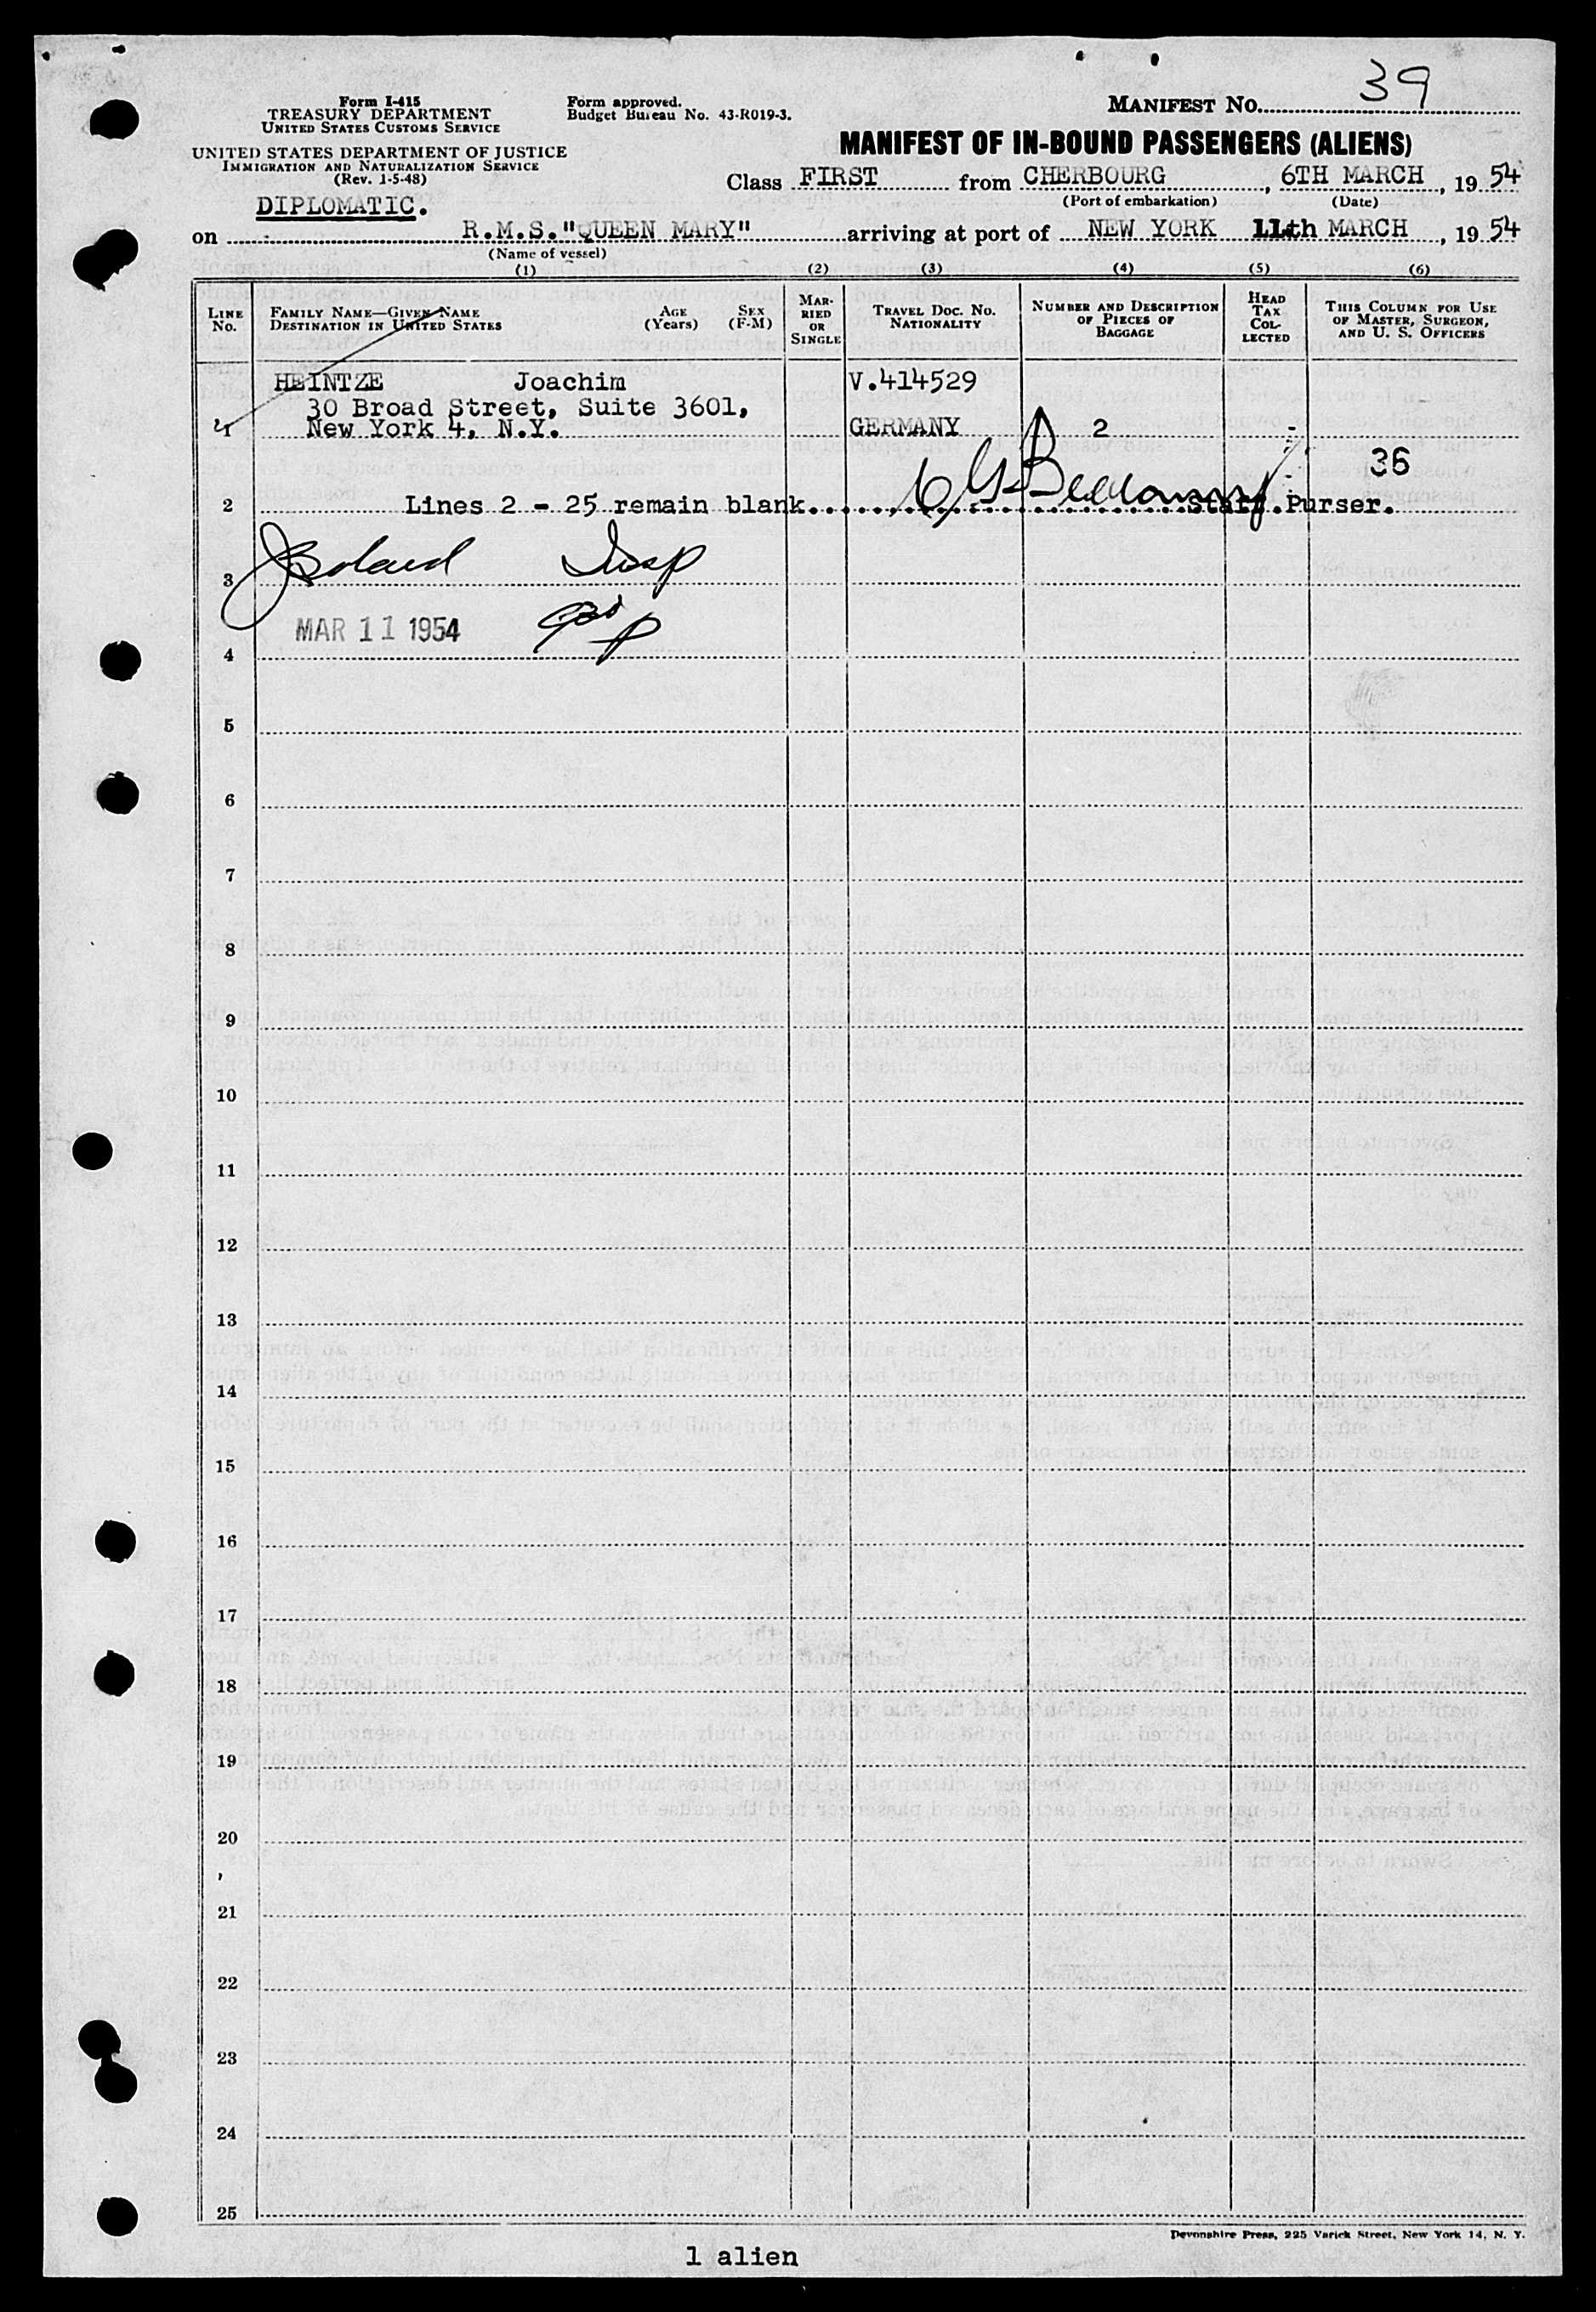 Form I-415
TREASURY DEPARTMENT
UNITED STATES CUSTOMS SERVICE
UNITED STATES DEPARTMENT OF JUSTICE
IMMIGRATION AND NATURALIZATION SERVICE
(Rev. 1-5-48)
DIPLOMATIC.
Form approved.
Budget Bureau No. 43-R019-3.
MANIFEST NO. 39
MANIFEST OF IN-BOUND PASSENGERS (ALIENS)
Class FIRST from CHERBOURG, 6TH MARCH, 19 54
(Port of embarkation) (Date)
on R.M.S."QUEEN MARY" arriving at port of NEW YORK 11th MARCH, 19 54
(Name of vessel)
(1) (2) (3) (4) (5) (6)
LINE NO.
FAMILY NAME—GIVEN NAME
DESTINATION IN UNITED STATES
AGE (Years)
SEX (F-M)
MARRIED OR SINGLE
TRAVEL DOC. NO.
NATIONALITY
NUMBER AND DESCRIPTION OF PIECES OF BAGGAGE
HEAD TAX COLLECTED
THIS COLUMN FOR USE OF MASTER, SURGEON, AND U. S. OFFICERS
HEINTZE Joachim V.414529
30 Broad Street, Suite 3601,
1 New York 4, N.Y. GERMANY 2
36
2 Lines 2 - 25 remain blank. Staff Purser.
3 Insp
MAR 11 1954
4
5
6
7
8
9
10
11
12
13
14
15
16
17
18
19
20
21
22
23
24
25
Devonshire Press, 225 Varick Street, New York 14, N. Y.
1 alien